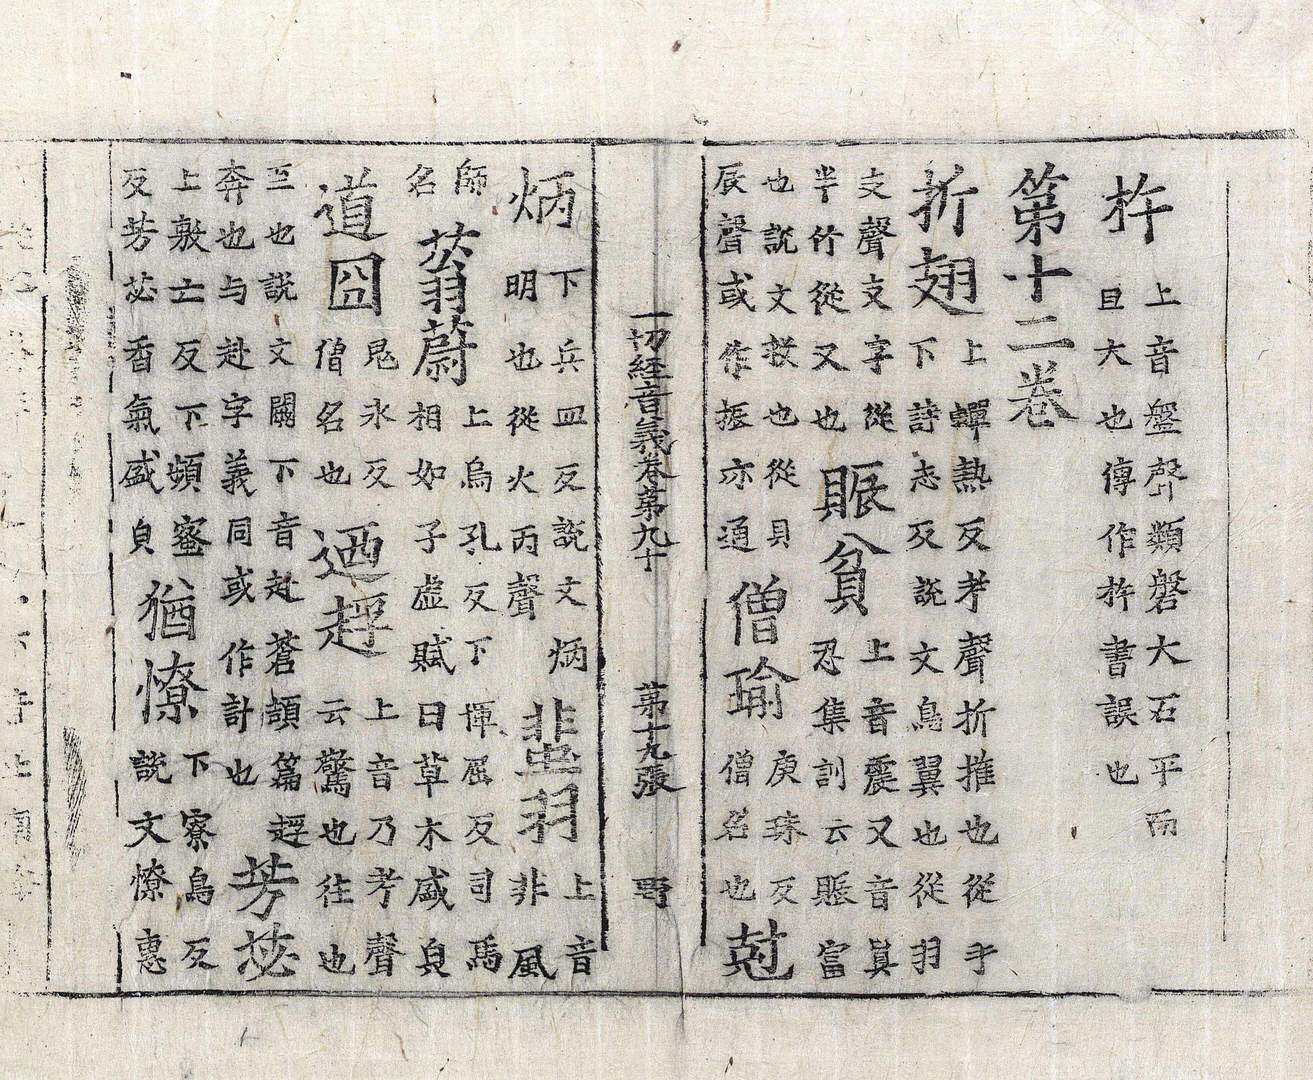 杵 上音盤聲類磐大石平而
且大也傳作杵書誤也
第十二卷
折翅 上蟬熱反考聲折摧也從手
下詩志反說文鳥翼也從羽
支聲支字從
半竹從又也
賑貧 上音震又音真
忍集訓云賑富
也說文救也從貝
辰聲或作振亦通
僧瑜 庾珠反
僧名也
尅
一切經音義卷第九十 第十九張 野
炳 下兵皿反說文炳
明也從火丙聲
蜚羽 上音
非風
師
名
蓊蔚 上烏孔反下惲屈反司馬
相如子虛賦曰草木盛皃
道囧 永反
僧名也
迺䞯 上音乃考聲
云驚也往也
三也說文闕下音赴蒼頡篇䞯
奔也与赴字義同或作訃也
芳苾
上敷亡反下頻蜜
反芳苾香氣盛皃
猶憭 下寮鳥反
說文憭憓